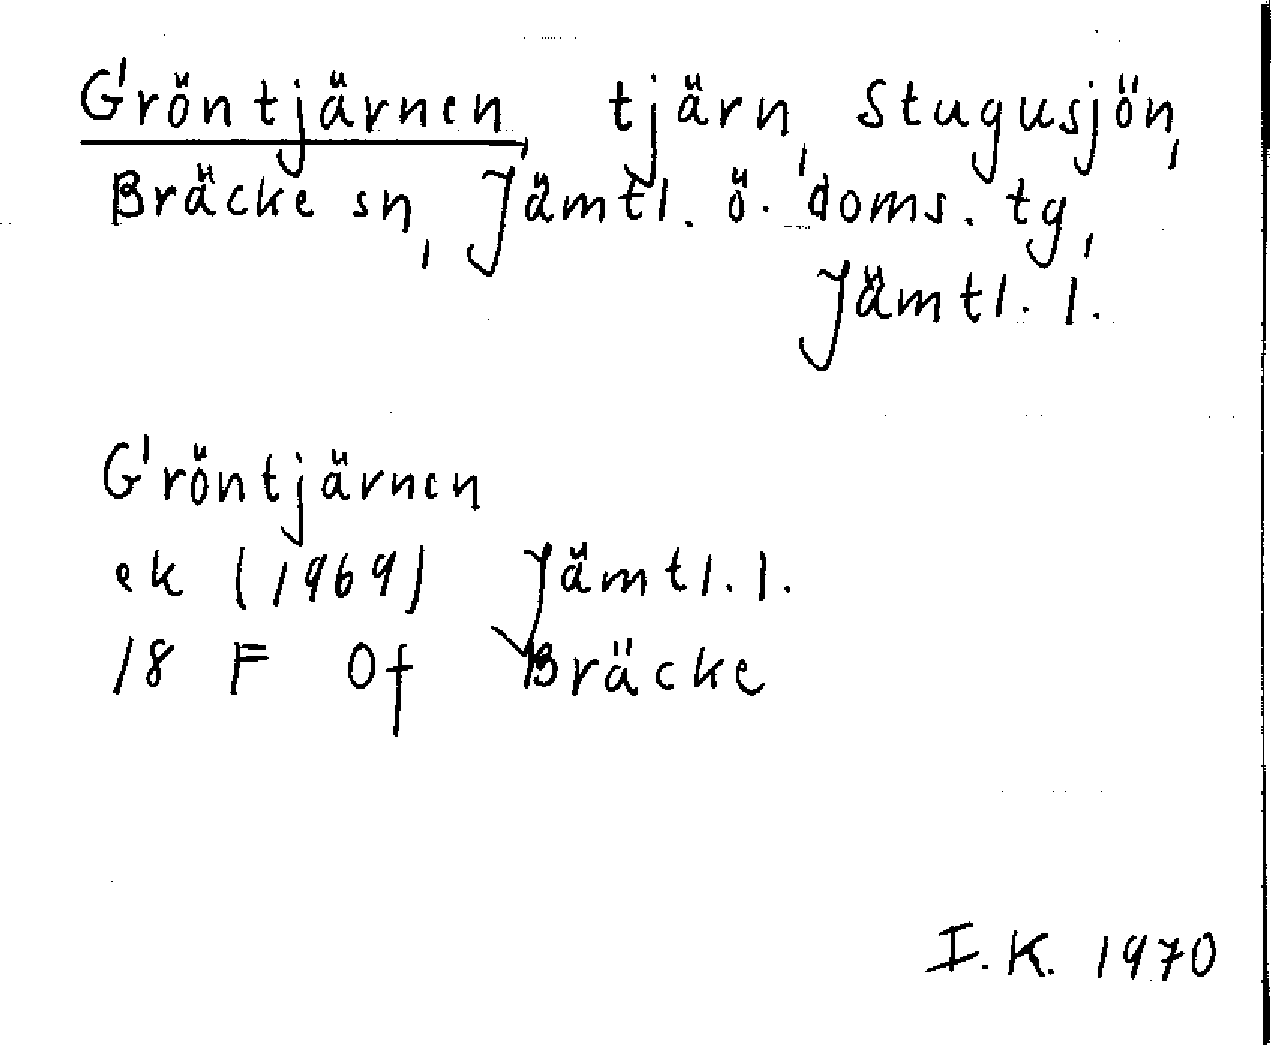 Gröntjärnen, tjärn, Stugusjön,
Bräcke sn, Jämtl. ö. doms. tg,
Jämtl. l.
Gröntjärnen
ek (1969) Jämtl. l.
18 F 0f Bräcke
I.K. 1970